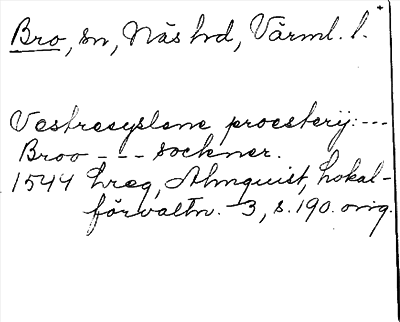 Bro, sn, Näs hd, Värml. l.
Vestresyslene proesterij: ---
Broo --- sockner.
1544 hreg, Almquist, Lokal-
förvaltn. 3, s. 190. orig.